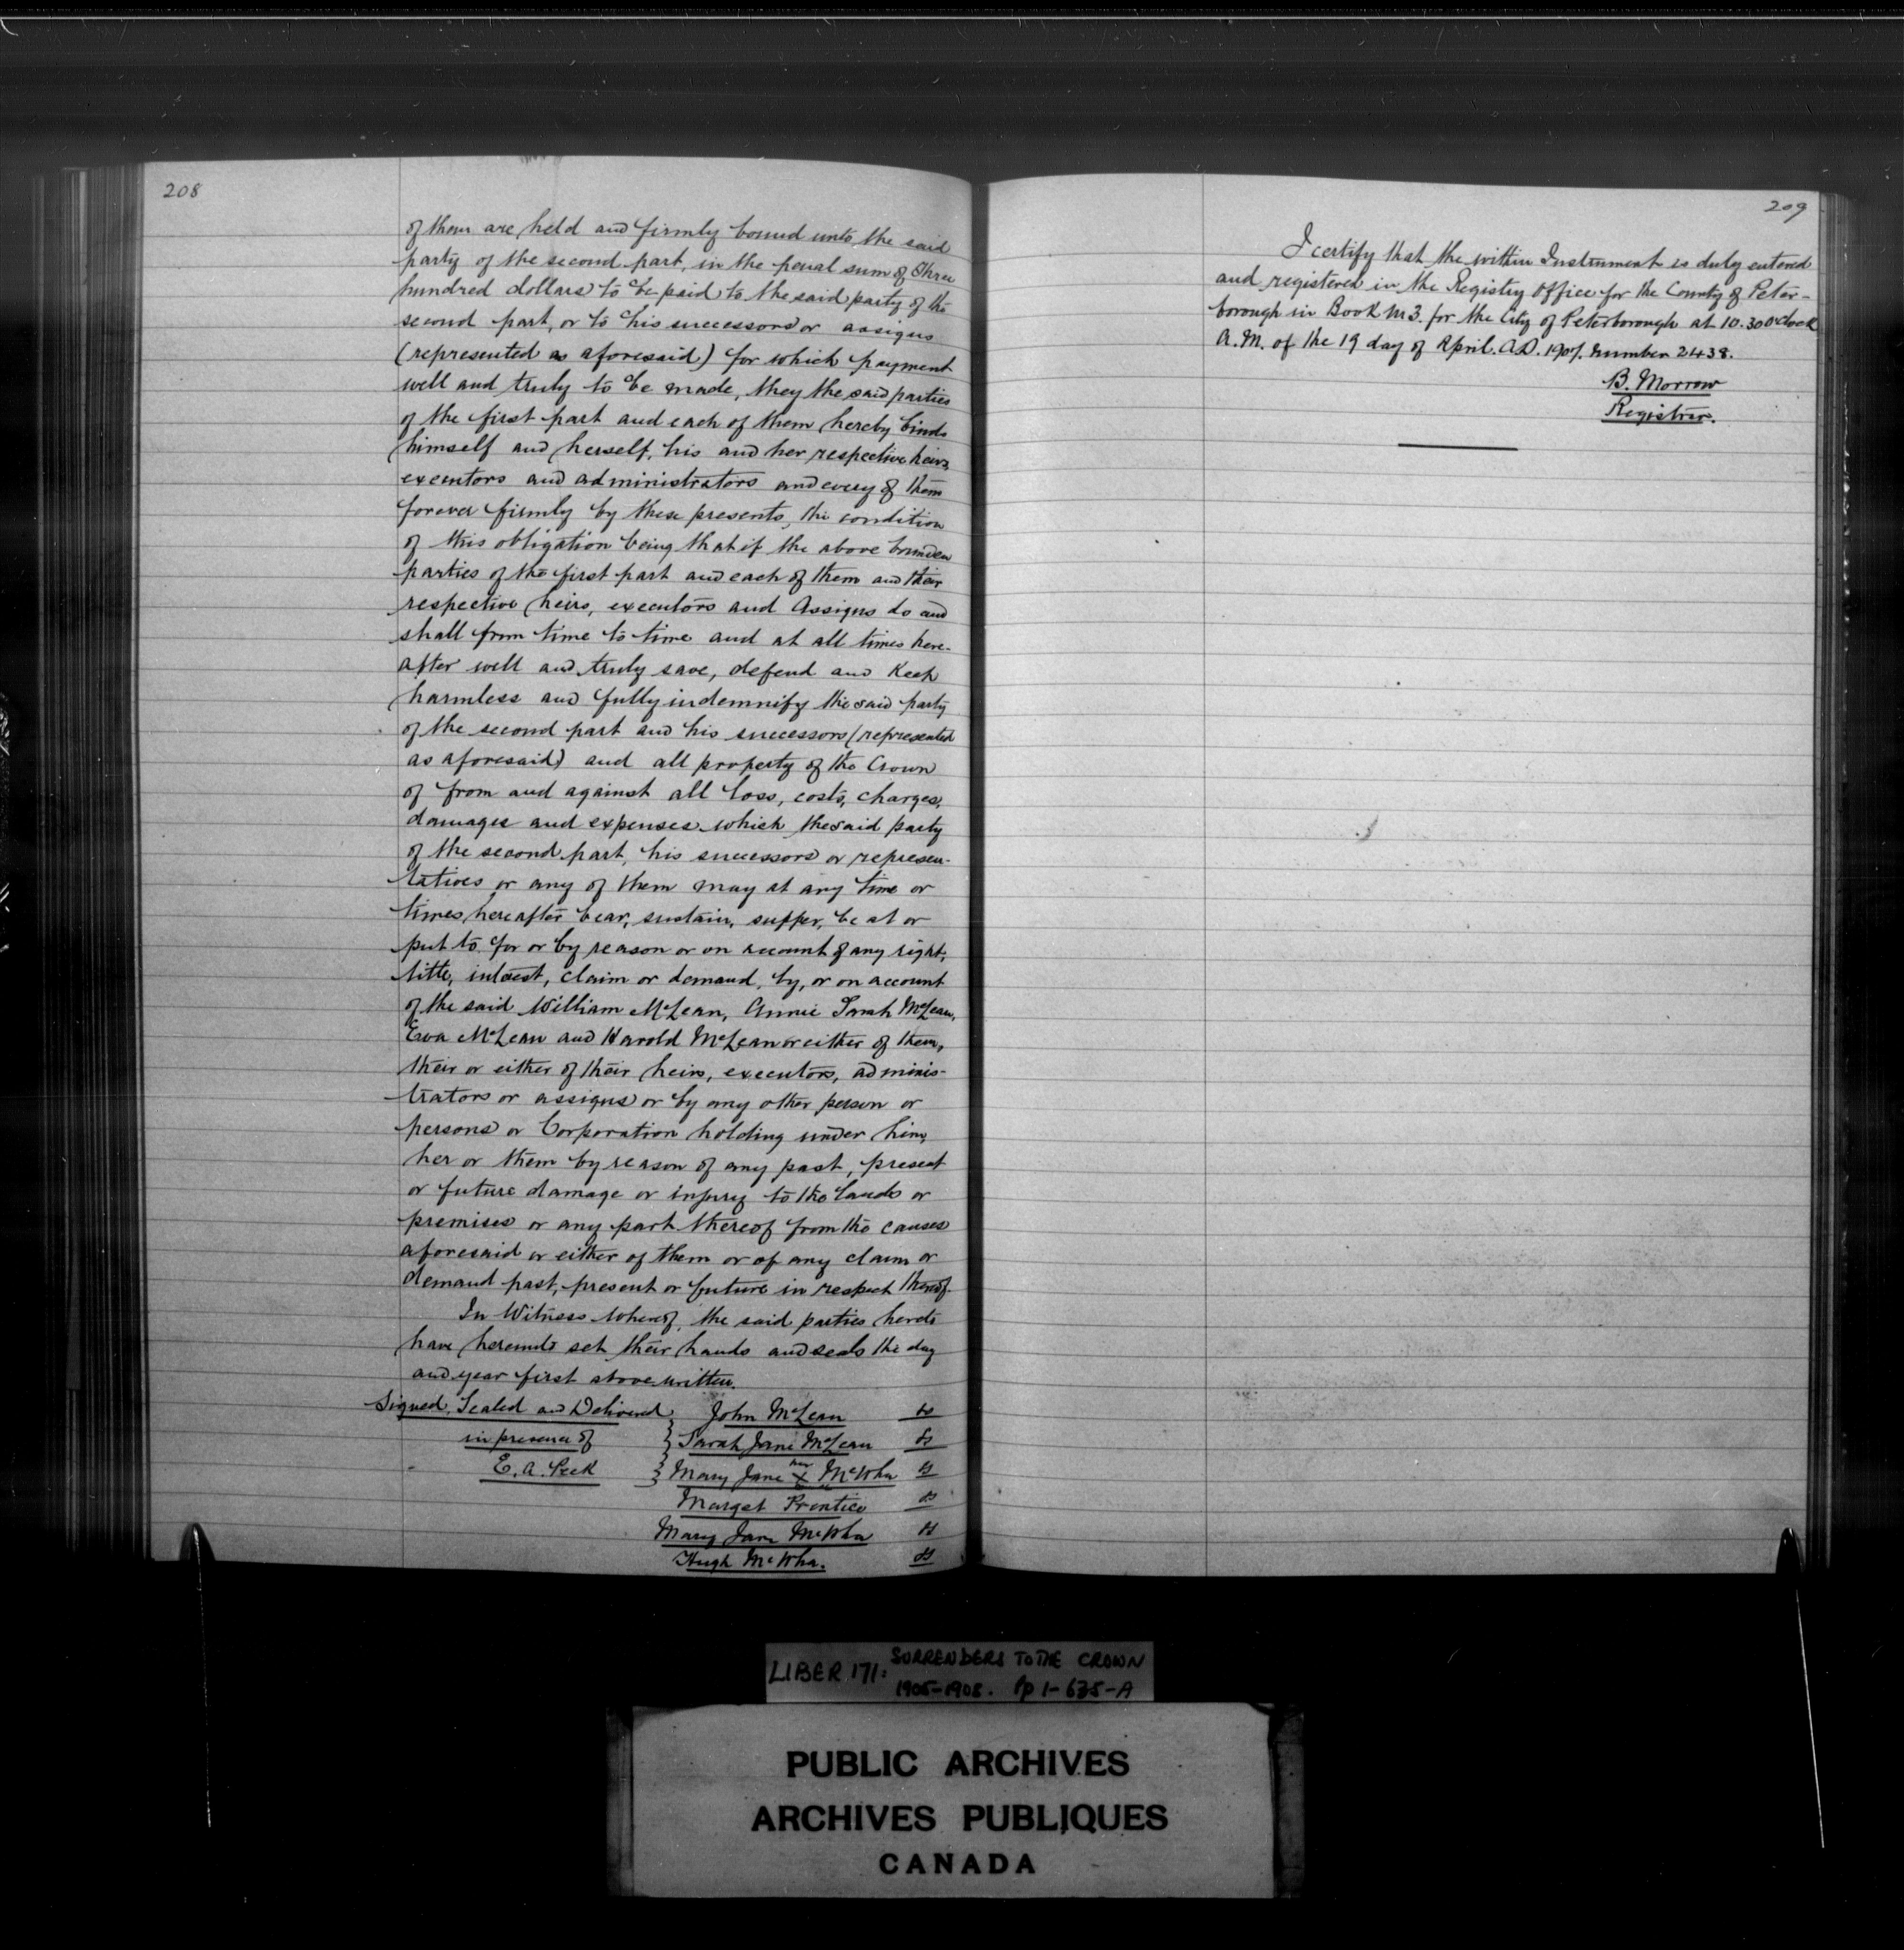 208
of them are held and firmly bound unto the said
party of the second part, in the penal sum of Three
hundred dollars to be paid to the said party of the
second part, or to his successors or assigns
(represented as aforesaid) for which payment
well and truly to be made, they the said parties
of the first part and each of them hereby binds
himself and herself, his and her respective heirs,
executors and administrators and every of them
forever firmly by these presents, the condition
of this obligation being that if the above bounden
parties of the first part and each of them and their
respective heirs, executors and Assigns do and
shall from time to time and at all times here-
after well and truly save, defend and Keep
harmless and fully indemnify the said party
of the second part and his successors (represented
as aforesaid) and all property of the Crown
of from and against all loss, costs, charges,
damages and expenses which the said party
of the second part, his successors or represen-
tatives or any of them may at any time or
times hereafter bear, sustain, suffer, be at or
put to for or by reason or on account of any right,
title, interest, claim or demand, by, or on account
of the said William McLean, Annie Sarah McLean,
Eva McLean and Harold McLean or either of them,
their or either of their heirs, executors, adminis-
trators or assigns or by any other person or
persons or Corporation holding under him,
her or them by reason of any past, present
or future damage or injury to the lands or
premises or any part thereof from the causes
aforesaid or either of them or of any claim or
demand past, present or future in respect thereof.
In Witness Whereof, the said parties hereto
have hereunto set their hands and seals the day
and year first above written.
Signed, Sealed and Delivered } John McLean LS
in presence of } Sarah Jane McLean LS
E. A. Peck } Mary Jane her X McWha LS
Marget Prentice LS
Mary Jane McWha LS
Hugh McWha. LS
209
I certify that the within Instrument is duly entered
and registered in the Registry Office for the County of Peter-
borough in Book M3. for the City of Peterborough at 10.30 o'clock
A.M. of the 19 day of April. A.D. 1907. number 2438.
B. Morrow
Registrar.
LIBER 171: SURRENDERS TO THE CROWN
1905-1908. Pp 1-635-A
PUBLIC ARCHIVES
ARCHIVES PUBLIQUES
CANADA